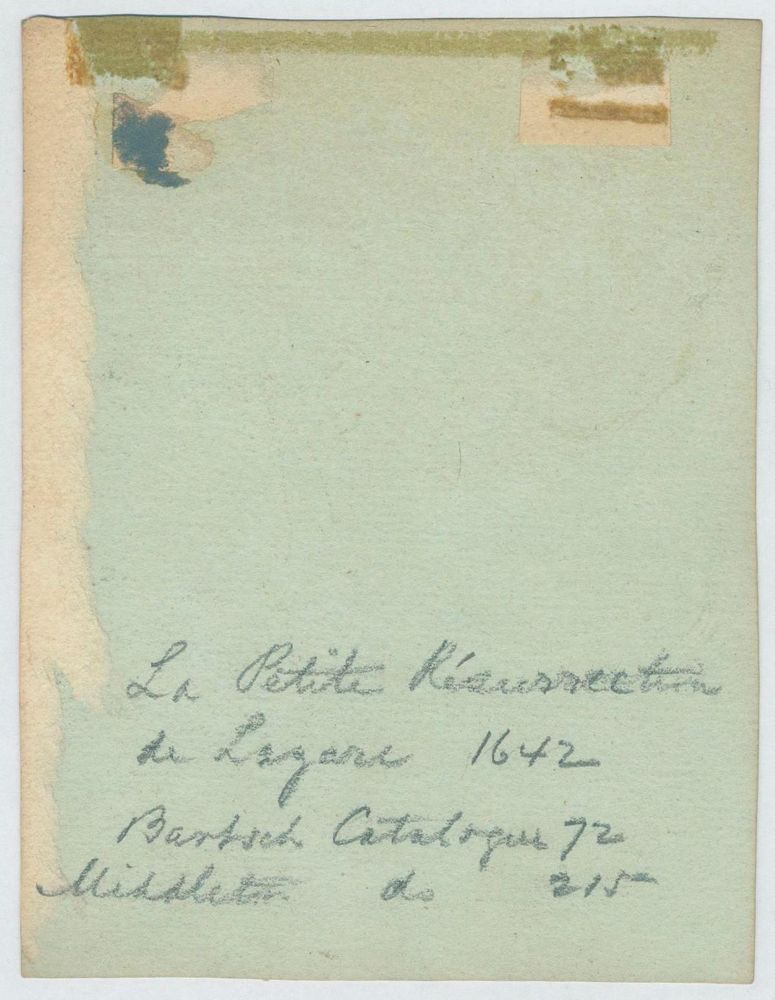 La Petite Résurrection
de Lazare 1642
Bartsch Catalogue 72
Middleton do 215